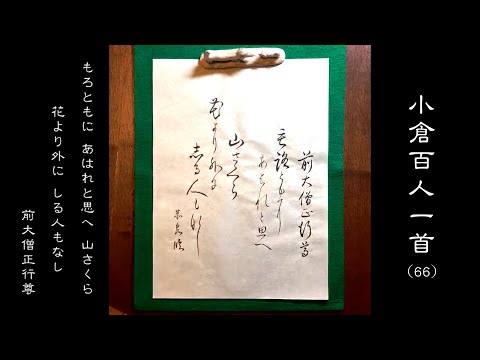 小倉百人一首
(66)
前大僧正行尊
毛路ともに
あはれと思へ
山さくら
花より外に
志る人もなし
もろともに あはれと思へ 山さくら
花より外に しる人もなし
前大僧正行尊